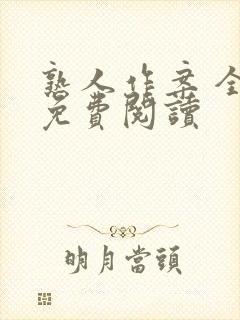 熟人作案全
免費閱讀
明月當頭